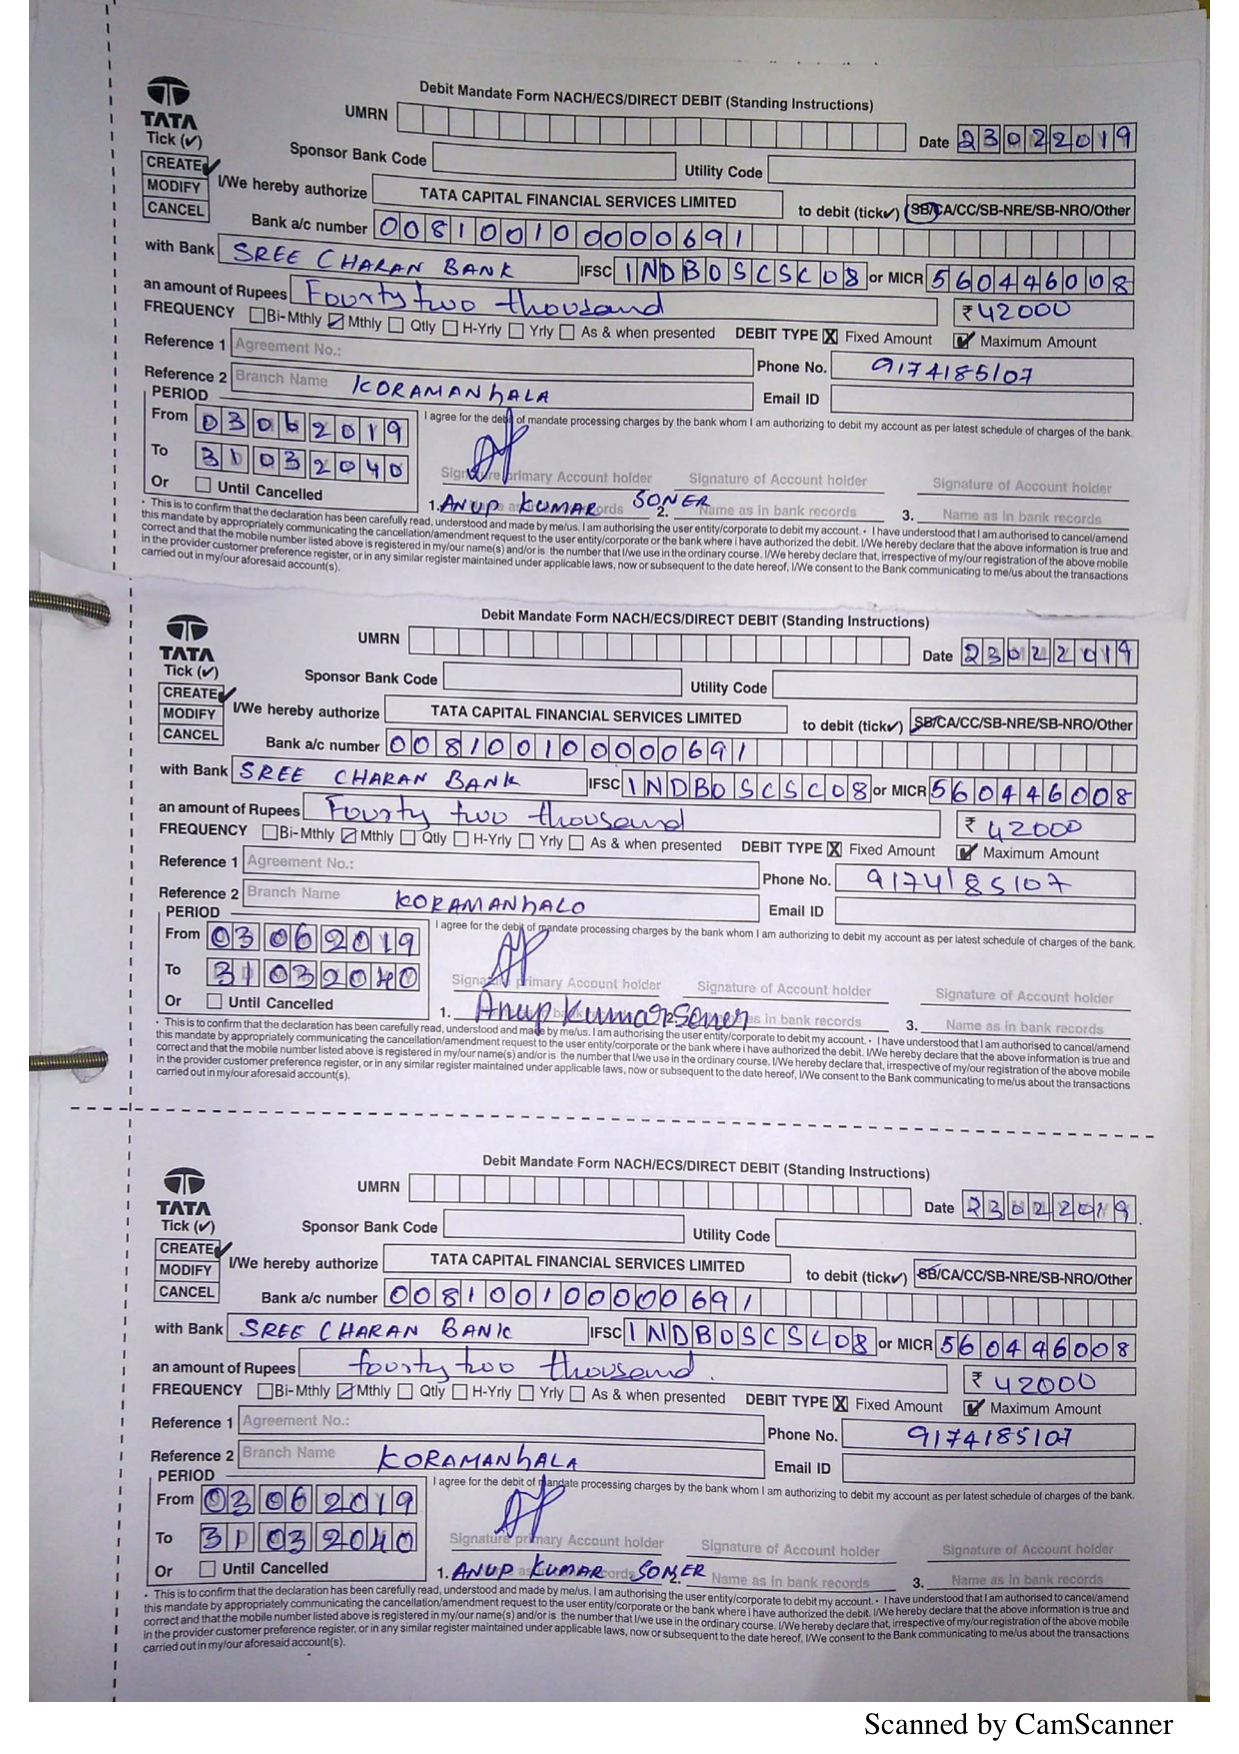 Debit Mandate Form NACH/ECS/DIRECT DEBIT (Standing Instructions)
TATA
UMRN
Date 23022019
Tick (✓)
Sponsor Bank Code Utility Code
CREATE ✓
MODIFY
CANCEL
I/We hereby authorize TATA CAPITAL FINANCIAL SERVICES LIMITED to debit (tick✓) SB/CA/CC/SB-NRE/SB-NRO/Other
Bank a/c number 008100100000691
with Bank SREE CHARAN BANK IFSC INDB0SCSC08 or MICR 560446008
an amount of Rupees Fourty two thousand ₹ 42000
FREQUENCY Bi-Mthly Mthly Qtly H-Yrly Yrly As & when presented DEBIT TYPE X Fixed Amount ✓ Maximum Amount
Reference 1 Agreement No.: Phone No. 9174185107
Reference 2 Branch Name KORAMANHALA Email ID
PERIOD
I agree for the debit of mandate processing charges by the bank whom I am authorizing to debit my account as per latest schedule of charges of the bank.
From 03062019
To 31032040
Signature primary Account holder Signature of Account holder Signature of Account holder
Or Until Cancelled
1. ANUP KUMAR SONER 2. Name as in bank records 3. Name as in bank records
• This is to confirm that the declaration has been carefully read, understood and made by me/us. I am authorising the user entity/corporate to debit my account. • I have understood that I am authorised to cancel/amend
this mandate by appropriately communicating the cancellation/amendment request to the user entity/corporate or the bank where i have authorized the debit. I/We hereby declare that the above information is true and
correct and that the mobile number listed above is registered in my/our name(s) and/or is the number that I/we use in the ordinary course. I/We hereby declare that, irrespective of my/our registration of the above mobile
in the provider customer preference register, or in any similar register maintained under applicable laws, now or subsequent to the date hereof, I/We consent to the Bank communicating to me/us about the transactions
carried out in my/our aforesaid account(s).
Debit Mandate Form NACH/ECS/DIRECT DEBIT (Standing Instructions)
TATA
UMRN
Date 23022019
Tick (✓)
Sponsor Bank Code Utility Code
CREATE ✓
MODIFY
CANCEL
I/We hereby authorize TATA CAPITAL FINANCIAL SERVICES LIMITED to debit (tick✓) SB/CA/CC/SB-NRE/SB-NRO/Other
Bank a/c number 008100100000691
with Bank SREE CHARAN BANK IFSC INDB0SCSC08 or MICR 560446008
an amount of Rupees Fourty two thousand ₹ 42000
FREQUENCY Bi-Mthly Mthly Qtly H-Yrly Yrly As & when presented DEBIT TYPE X Fixed Amount ✓ Maximum Amount
Reference 1 Agreement No.: Phone No. 9174185107
Reference 2 Branch Name KORAMANHALO Email ID
PERIOD
I agree for the debit of mandate processing charges by the bank whom I am authorizing to debit my account as per latest schedule of charges of the bank.
From 03062019
To 31032040
Signature primary Account holder Signature of Account holder Signature of Account holder
Or Until Cancelled
1. Anup Kumar Soner 2. as in bank records 3. Name as in bank records
• This is to confirm that the declaration has been carefully read, understood and made by me/us. I am authorising the user entity/corporate to debit my account. • I have understood that I am authorised to cancel/amend
this mandate by appropriately communicating the cancellation/amendment request to the user entity/corporate or the bank where i have authorized the debit. I/We hereby declare that the above information is true and
correct and that the mobile number listed above is registered in my/our name(s) and/or is the number that I/we use in the ordinary course. I/We hereby declare that, irrespective of my/our registration of the above mobile
in the provider customer preference register, or in any similar register maintained under applicable laws, now or subsequent to the date hereof, I/We consent to the Bank communicating to me/us about the transactions
carried out in my/our aforesaid account(s).
Debit Mandate Form NACH/ECS/DIRECT DEBIT (Standing Instructions)
TATA
UMRN
Date 23022019
Tick (✓)
Sponsor Bank Code Utility Code
CREATE ✓
MODIFY
CANCEL
I/We hereby authorize TATA CAPITAL FINANCIAL SERVICES LIMITED to debit (tick✓) SB/CA/CC/SB-NRE/SB-NRO/Other
Bank a/c number 008100100000691
with Bank SREE CHARAN BANK IFSC INDB0SCSC08 or MICR 560446008
an amount of Rupees fourty two thousand. ₹ 42000
FREQUENCY Bi-Mthly Mthly Qtly H-Yrly Yrly As & when presented DEBIT TYPE X Fixed Amount ✓ Maximum Amount
Reference 1 Agreement No.: Phone No. 9174185107
Reference 2 Branch Name KORAMANHALA Email ID
PERIOD
I agree for the debit of mandate processing charges by the bank whom I am authorizing to debit my account as per latest schedule of charges of the bank.
From 03062019
To 31032040
Signature primary Account holder Signature of Account holder Signature of Account holder
Or Until Cancelled
1. ANUP KUMAR SONER 2. Name as in bank records 3. Name as in bank records
• This is to confirm that the declaration has been carefully read, understood and made by me/us. I am authorising the user entity/corporate to debit my account. • I have understood that I am authorised to cancel/amend
this mandate by appropriately communicating the cancellation/amendment request to the user entity/corporate or the bank where i have authorized the debit. I/We hereby declare that the above information is true and
correct and that the mobile number listed above is registered in my/our name(s) and/or is the number that I/we use in the ordinary course. I/We hereby declare that, irrespective of my/our registration of the above mobile
in the provider customer preference register, or in any similar register maintained under applicable laws, now or subsequent to the date hereof, I/We consent to the Bank communicating to me/us about the transactions
carried out in my/our aforesaid account(s).
Scanned by CamScanner